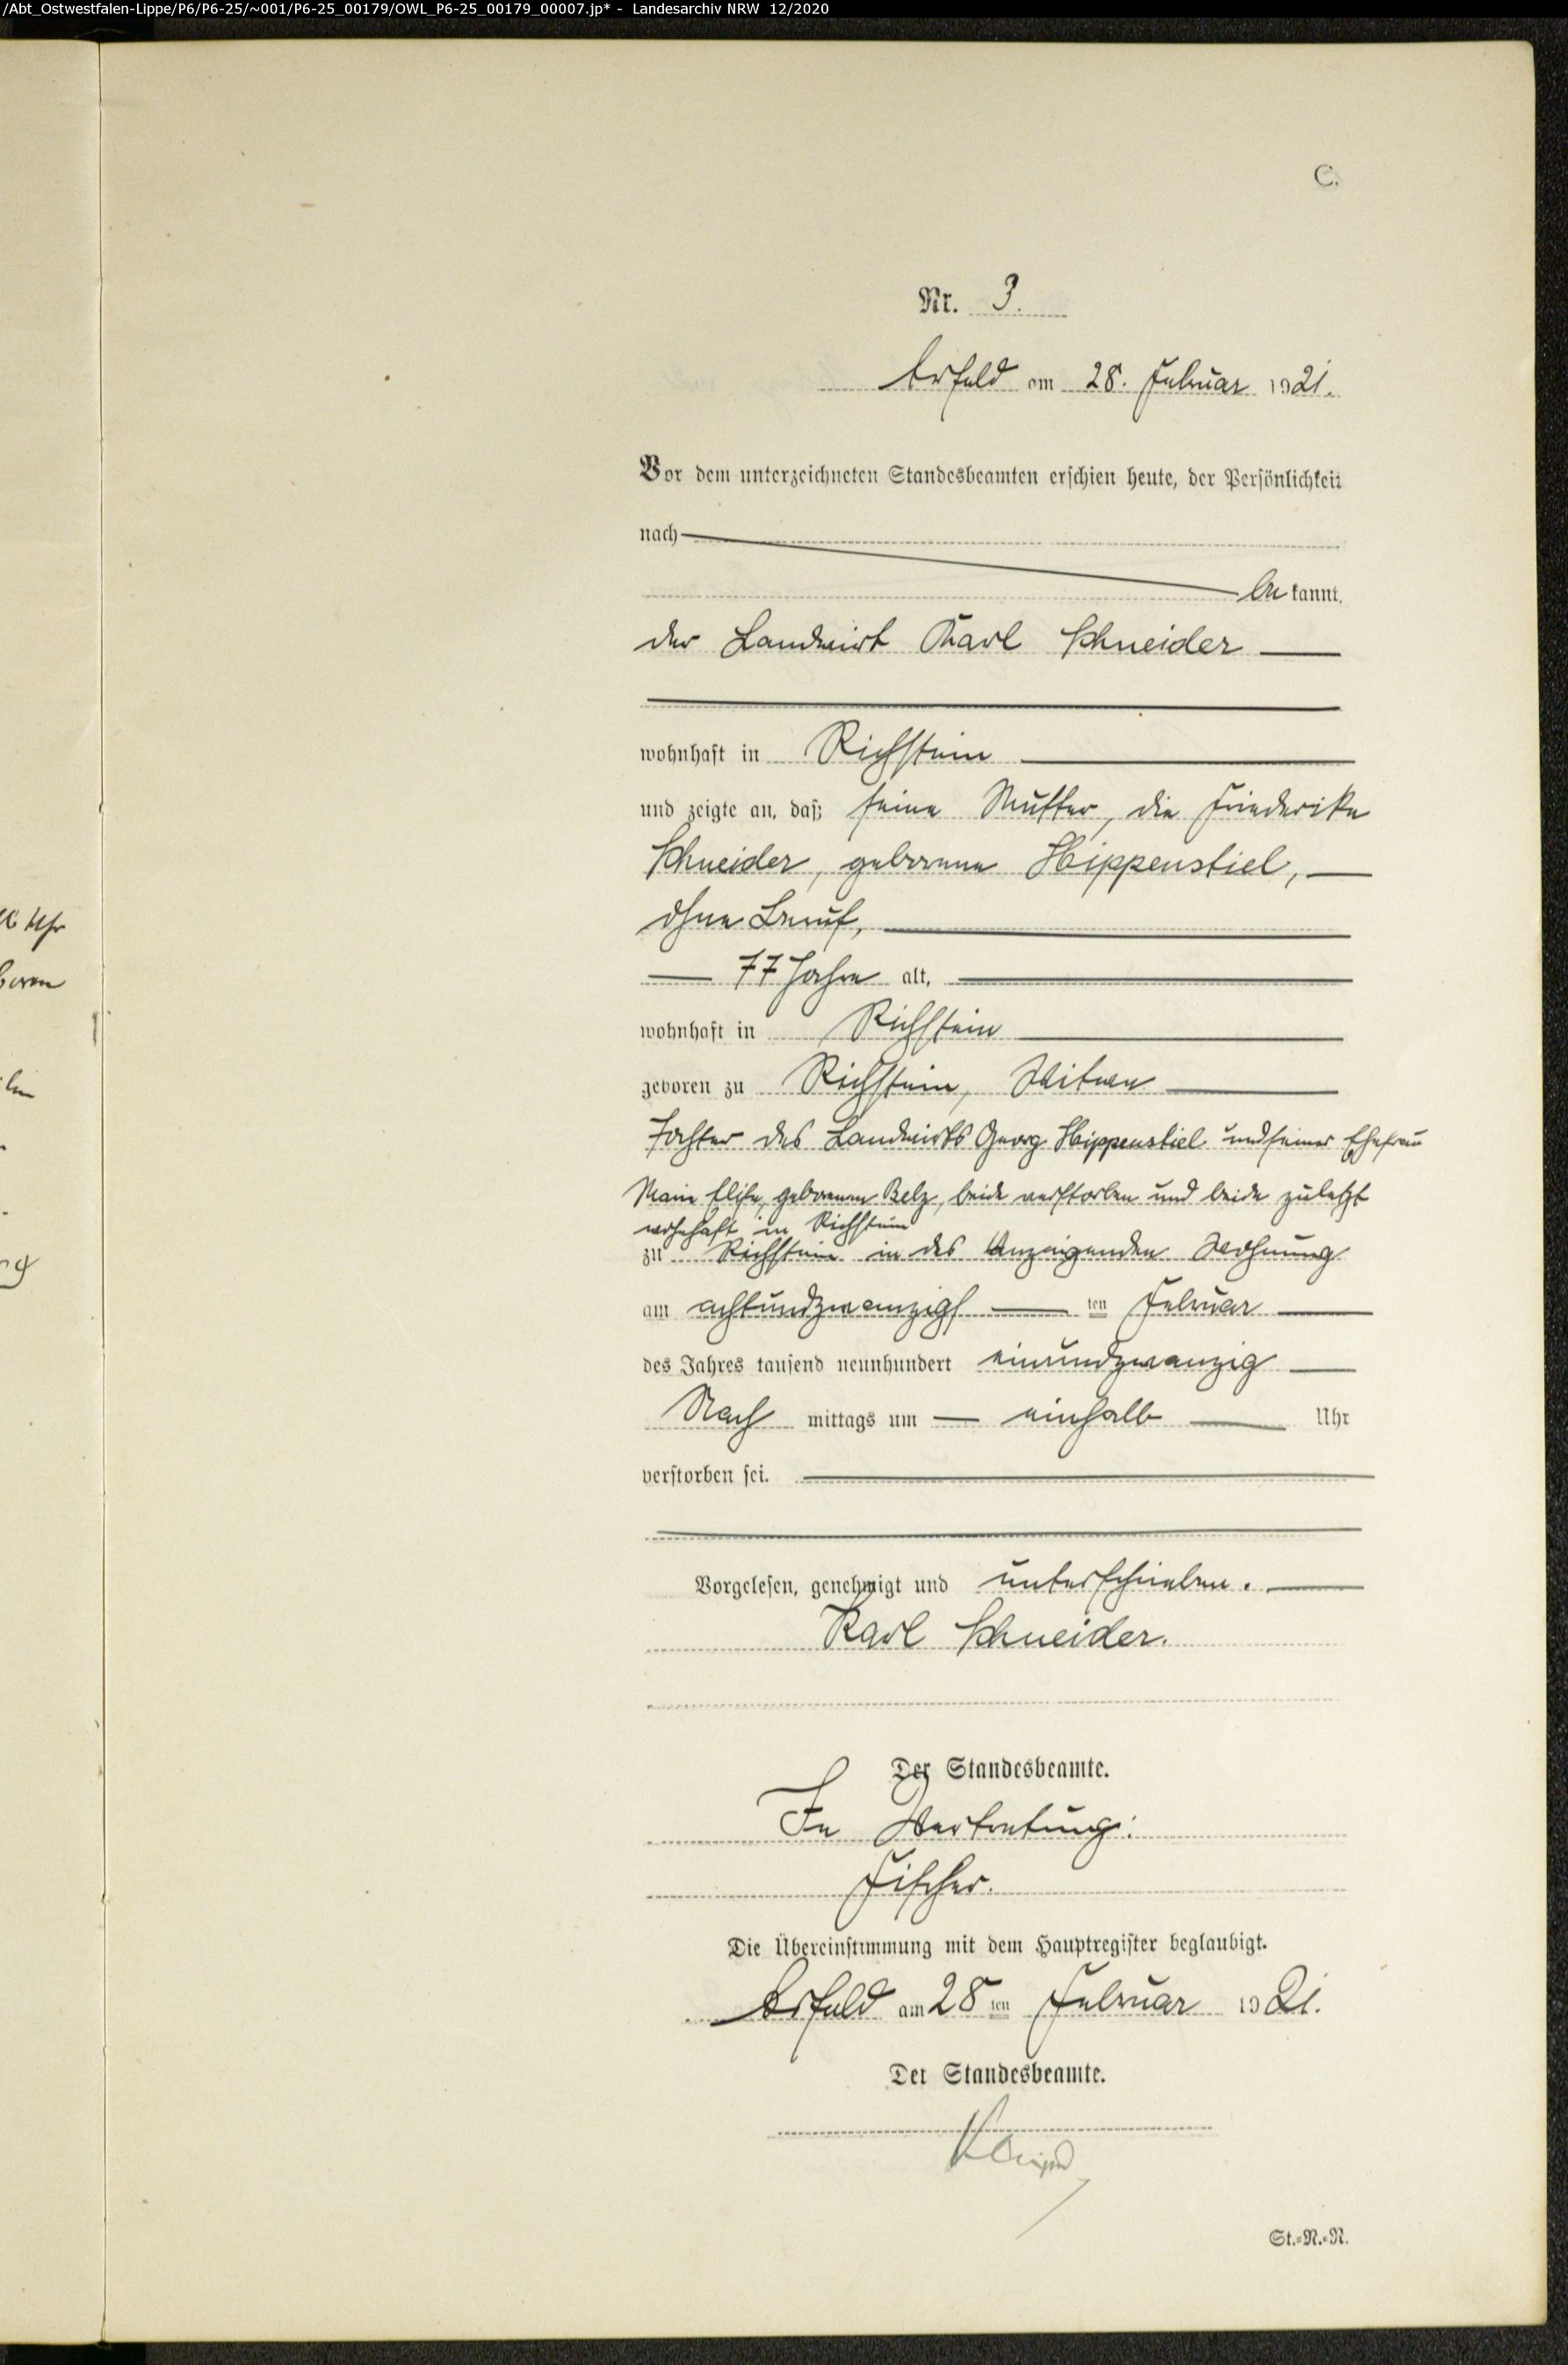 /Abt_Ostwestfalen-Lippe/P6/P6-25/~001/P6-25_00179/OWL_P6-25_00179_00007.jp* - Landesarchiv NRW 12/2020
C.
Nr. 3.
Arfeld am 28. Februar 1921.
Vor dem unterzeichneten Standesbeamten erschien heute, der Persönlichkeit
nach
be kannt,
der Landwirt Karl Schneider
wohnhaft in Richstein
und zeigte an, daß seine Mutter, die Friederike
Schneider, geborene Hippenstiel,
ohne Beruf,
77 Jahre alt,
wohnhaft in Richstein
geboren zu Richstein, Witwe
Tochter des Landwirts Georg Hippenstiel und seiner Ehefrau
Marie Elise, geborenen Belz, beide verstorben und beide zuletzt
wohnhaft in Richstein
zu Richstein in des Anzeigenden Wohnung
am achtundzwanzigs ten Februar
des Jahres tausend neunhundert einundzwanzig
Nach mittags um einhalb Uhr
verstorben sei.
Vorgelesen, genehmigt und unterschrieben.
Karl Schneider.
Der Standesbeamte.
In Vertretung:
Fischer.
Die Übereinstimmung mit dem Hauptregister beglaubigt.
Arfeld am 28 ten Februar 1921.
Der Standesbeamte.
St.-N.-N.